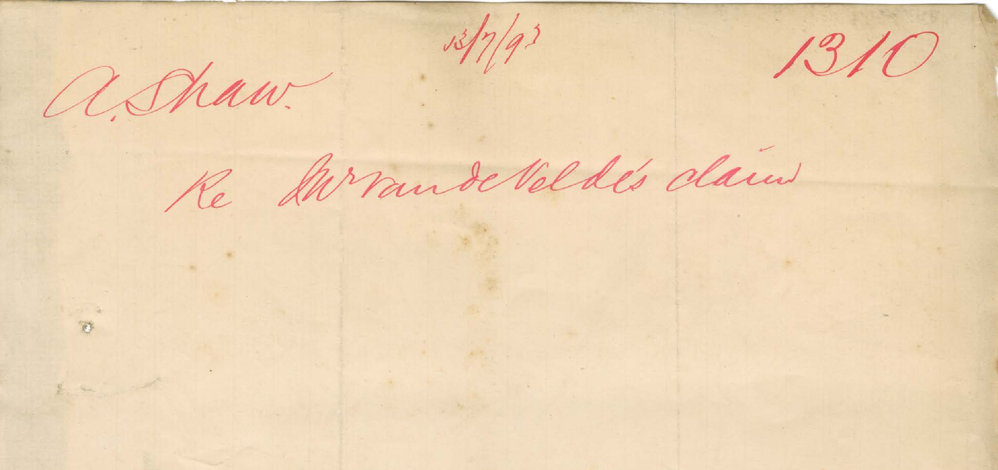 13/7/93
1310
A. Shaw.
Re Mr Van de Velde's claim